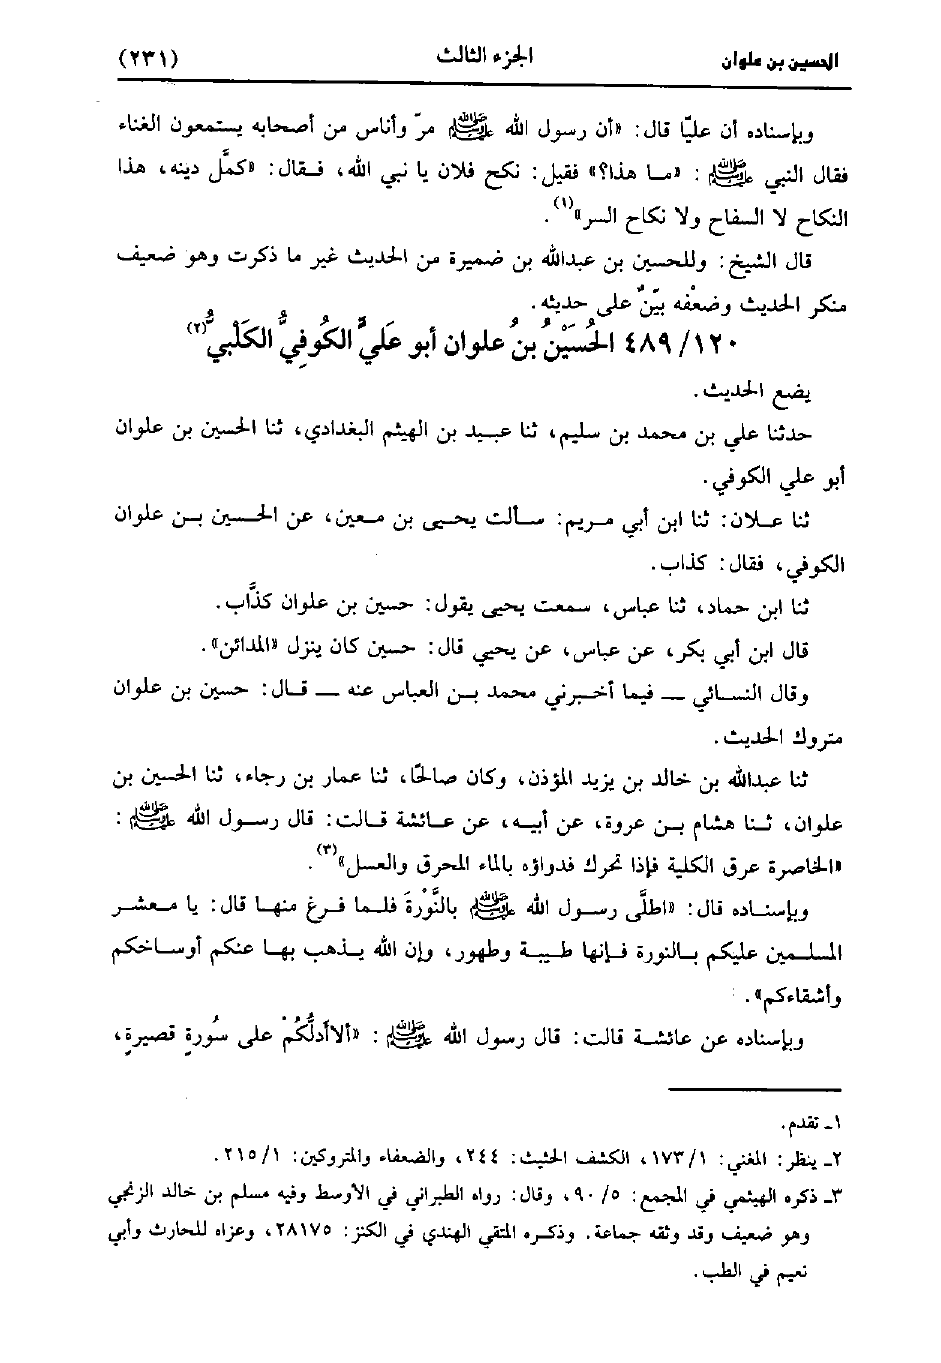 الحسين بن علوان الجزء الثالث (٢٣١)
وبإسناده أن عليًا قال: «أن رسول الله ﷺ مرّ وأناس من أصحابه يستمعون الغناء
فقال النبي ﷺ : «ما هذا؟» فقيل: نكح فلان يا نبي الله، فقال: «كمَّل دينه، هذا
النكاح لا السفاح ولا نكاح السر»(١).
قال الشيخ: وللحسين بن عبدالله بن ضميرة من الحديث غير ما ذكرت وهو ضعيف
منكر الحديث وضعْفه بيّنٌ على حديثه.
٤٨٩/١٢٠ الحُسَيْنُ بنُ علوان أبو عَليٍّ الكُوفيُّ الكَلْبيُّ(٢)
يضع الحديث.
حدثنا علي بن محمد بن سليم، ثنا عبيد بن الهيثم البغدادي، ثنا الحسين بن علوان
أبو علي الكوفي.
ثنا علان: ثنا ابن أبي مريم: سألت يحيى بن معين، عن الحسين بن علوان
الكوفي، فقال: كذاب.
ثنا ابن حماد، ثنا عباس، سمعت يحيى يقول: حسين بن علوان كذَّاب.
قال ابن أبي بكر، عن عباس، عن يحيي قال: حسين كان ينزل «المدائن».
وقال النسائي ــ فيما أخبرني محمد بن العباس عنه ــ قال: حسين بن علوان
متروك الحديث.
ثنا عبدالله بن خالد بن يزيد المؤذن، وكان صالحًا، ثنا عمار بن رجاء، ثنا الحسين بن
علوان، ثنا هشام بن عروة، عن أبيه، عن عائشة قالت: قال رسول الله ﷺ :
«الخاصرة عرق الكلية فإذا تحرك فدواؤه بالماء المحرق والعسل»(٣).
وبإسناده قال: «اطلَّى رسول الله ﷺ بالنَّوْرَةَ فلما فرغ منها قال: يا معشر
المسلمين عليكم بالنورة فإنها طيبة وطهور، وإن الله يذهب بها عنكم أوساخكم
وأشقاءكم».
وبإسناده عن عائشة قالت: قال رسول الله ﷺ : «ألاأَدلُّكُمْ على سُورةٍ قصيرةٍ،
١ـ تقدم.
٢ـ ينظر: المغني: ١٧٣/١، الكشف الحثيث: ٢٤٤، والضعفاء والمتروكين: ٢١٥/١.
٣ـ ذكره الهيثمي في المجمع: ٩٠/٥، وقال: رواه الطبراني في الأوسط وفيه مسلم بن خالد الزنجي
وهو ضعيف وقد وثقه جماعة. وذكره المتقي الهندي في الكنز: ٢٨١٧٥، وعزاه للحارث وأبي
نعيم في الطب.